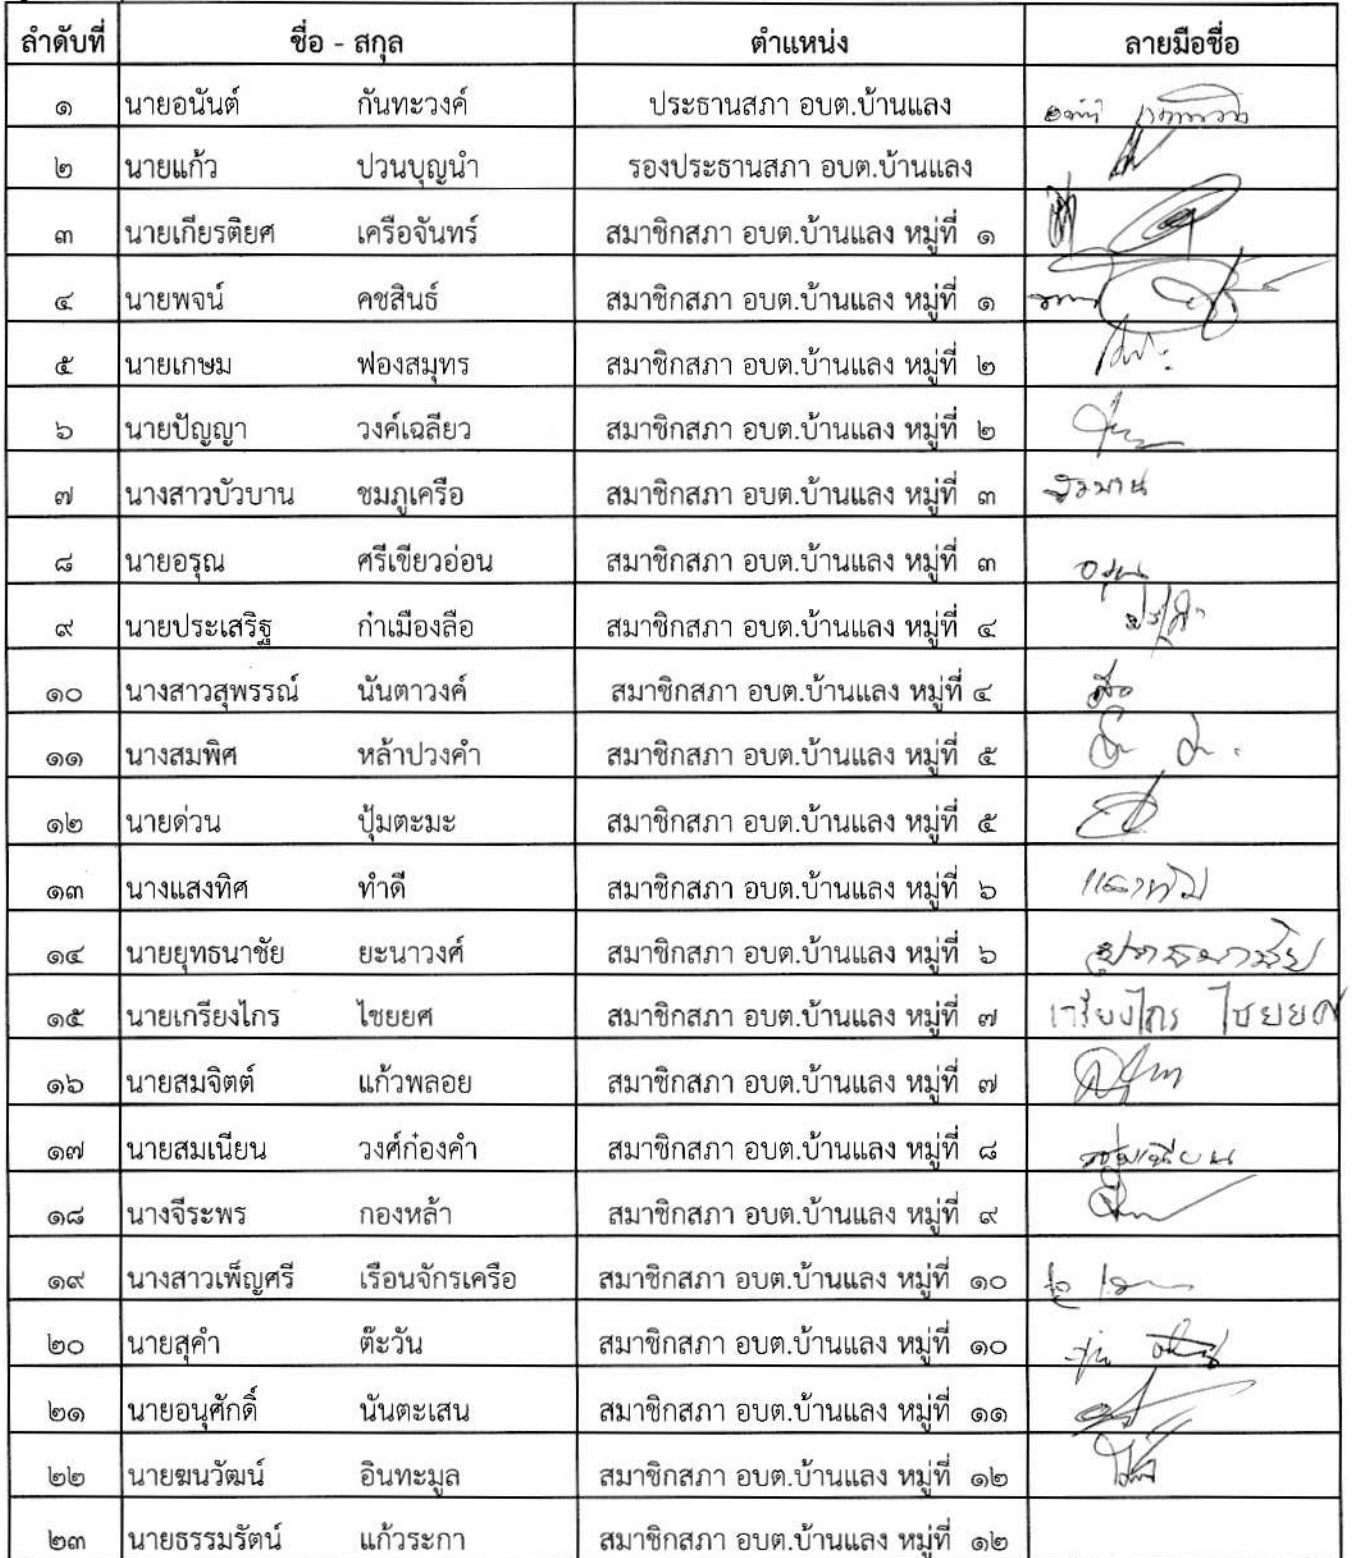 ลำดับที่ ชื่อ - สกุล ตำแหน่ง ลายมือชื่อ
๑ นายอนันต์ กันทะวงค์ ประธานสภา อบต.บ้านแลง
๒ นายแก้ว ปวนบุญนำ รองประธานสภา อบต.บ้านแลง
๓ นายเกียรติยศ เครือจันทร์ สมาชิกสภา อบต.บ้านแลง หมู่ที่ ๑
๔ นายพจน์ คชสินธ์ สมาชิกสภา อบต.บ้านแลง หมู่ที่ ๑
๕ นายเกษม ฟองสมุทร สมาชิกสภา อบต.บ้านแลง หมู่ที่ ๒
๖ นายปัญญา วงค์เฉลียว สมาชิกสภา อบต.บ้านแลง หมู่ที่ ๒
๗ นางสาวบัวบาน ชมภูเครือ สมาชิกสภา อบต.บ้านแลง หมู่ที่ ๓ บัวบาน
๘ นายอรุณ ศรีเขียวอ่อน สมาชิกสภา อบต.บ้านแลง หมู่ที่ ๓ อรุณ
๙ นายประเสริฐ ก๋าเมืองลือ สมาชิกสภา อบต.บ้านแลง หมู่ที่ ๔
๑๐ นางสาวสุพรรณ์ นันตาวงค์ สมาชิกสภา อบต.บ้านแลง หมู่ที่ ๔
๑๑ นางสมพิศ หล้าปวงคำ สมาชิกสภา อบต.บ้านแลง หมู่ที่ ๕
๑๒ นายด่วน ปุ้มตะมะ สมาชิกสภา อบต.บ้านแลง หมู่ที่ ๕
๑๓ นางแสงทิศ ทำดี สมาชิกสภา อบต.บ้านแลง หมู่ที่ ๖
๑๔ นายยุทธนาชัย ยะนาวงศ์ สมาชิกสภา อบต.บ้านแลง หมู่ที่ ๖ ยุทธนาชัย
๑๕ นายเกรียงไกร ไชยยศ สมาชิกสภา อบต.บ้านแลง หมู่ที่ ๗ เกรียงไกร ไชยยศ
๑๖ นายสมจิตต์ แก้วพลอย สมาชิกสภา อบต.บ้านแลง หมู่ที่ ๗
๑๗ นายสมเนียน วงศ์ก๋องคำ สมาชิกสภา อบต.บ้านแลง หมู่ที่ ๘ สมเนียน
๑๘ นางจีระพร กองหล้า สมาชิกสภา อบต.บ้านแลง หมู่ที่ ๙
๑๙ นางสาวเพ็ญศรี เรือนจักรเครือ สมาชิกสภา อบต.บ้านแลง หมู่ที่ ๑๐
๒๐ นายสุคำ ต๊ะวัน สมาชิกสภา อบต.บ้านแลง หมู่ที่ ๑๐
๒๑ นายอนุศักดิ์ นันตะเสน สมาชิกสภา อบต.บ้านแลง หมู่ที่ ๑๑
๒๒ นายฆนวัฒน์ อินทะมูล สมาชิกสภา อบต.บ้านแลง หมู่ที่ ๑๒
๒๓ นายธรรมรัตน์ แก้วระกา สมาชิกสภา อบต.บ้านแลง หมู่ที่ ๑๒